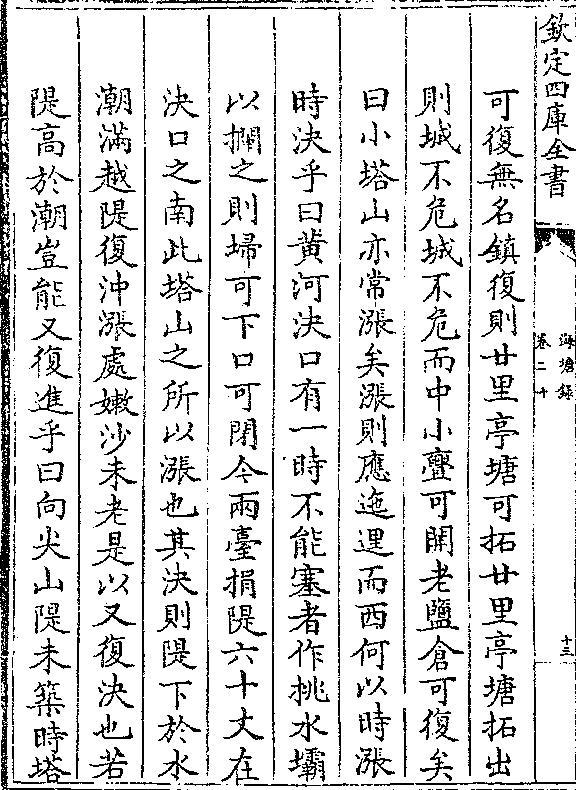 欽定四庫全書
海塘錄
卷二十
十三
可復無名鎮復則廿里亭塘可拓廿里亭塘拓出
則城不危城不危而中小亹可開老鹽倉可復矣
曰小塔山亦常漲矣漲則應迤邐而西何以時漲
時決乎曰黄河決口有一時不能塞者作挑水壩
以攔之則埽可下口可閉今兩臺捐隄六十丈在
決口之南此塔山之所以漲也其決則隄下於水
潮滿越隄復沖漲處嫩沙未老是以又復決也若
隄高於潮豈能又復進乎曰向尖山隄未築時塔